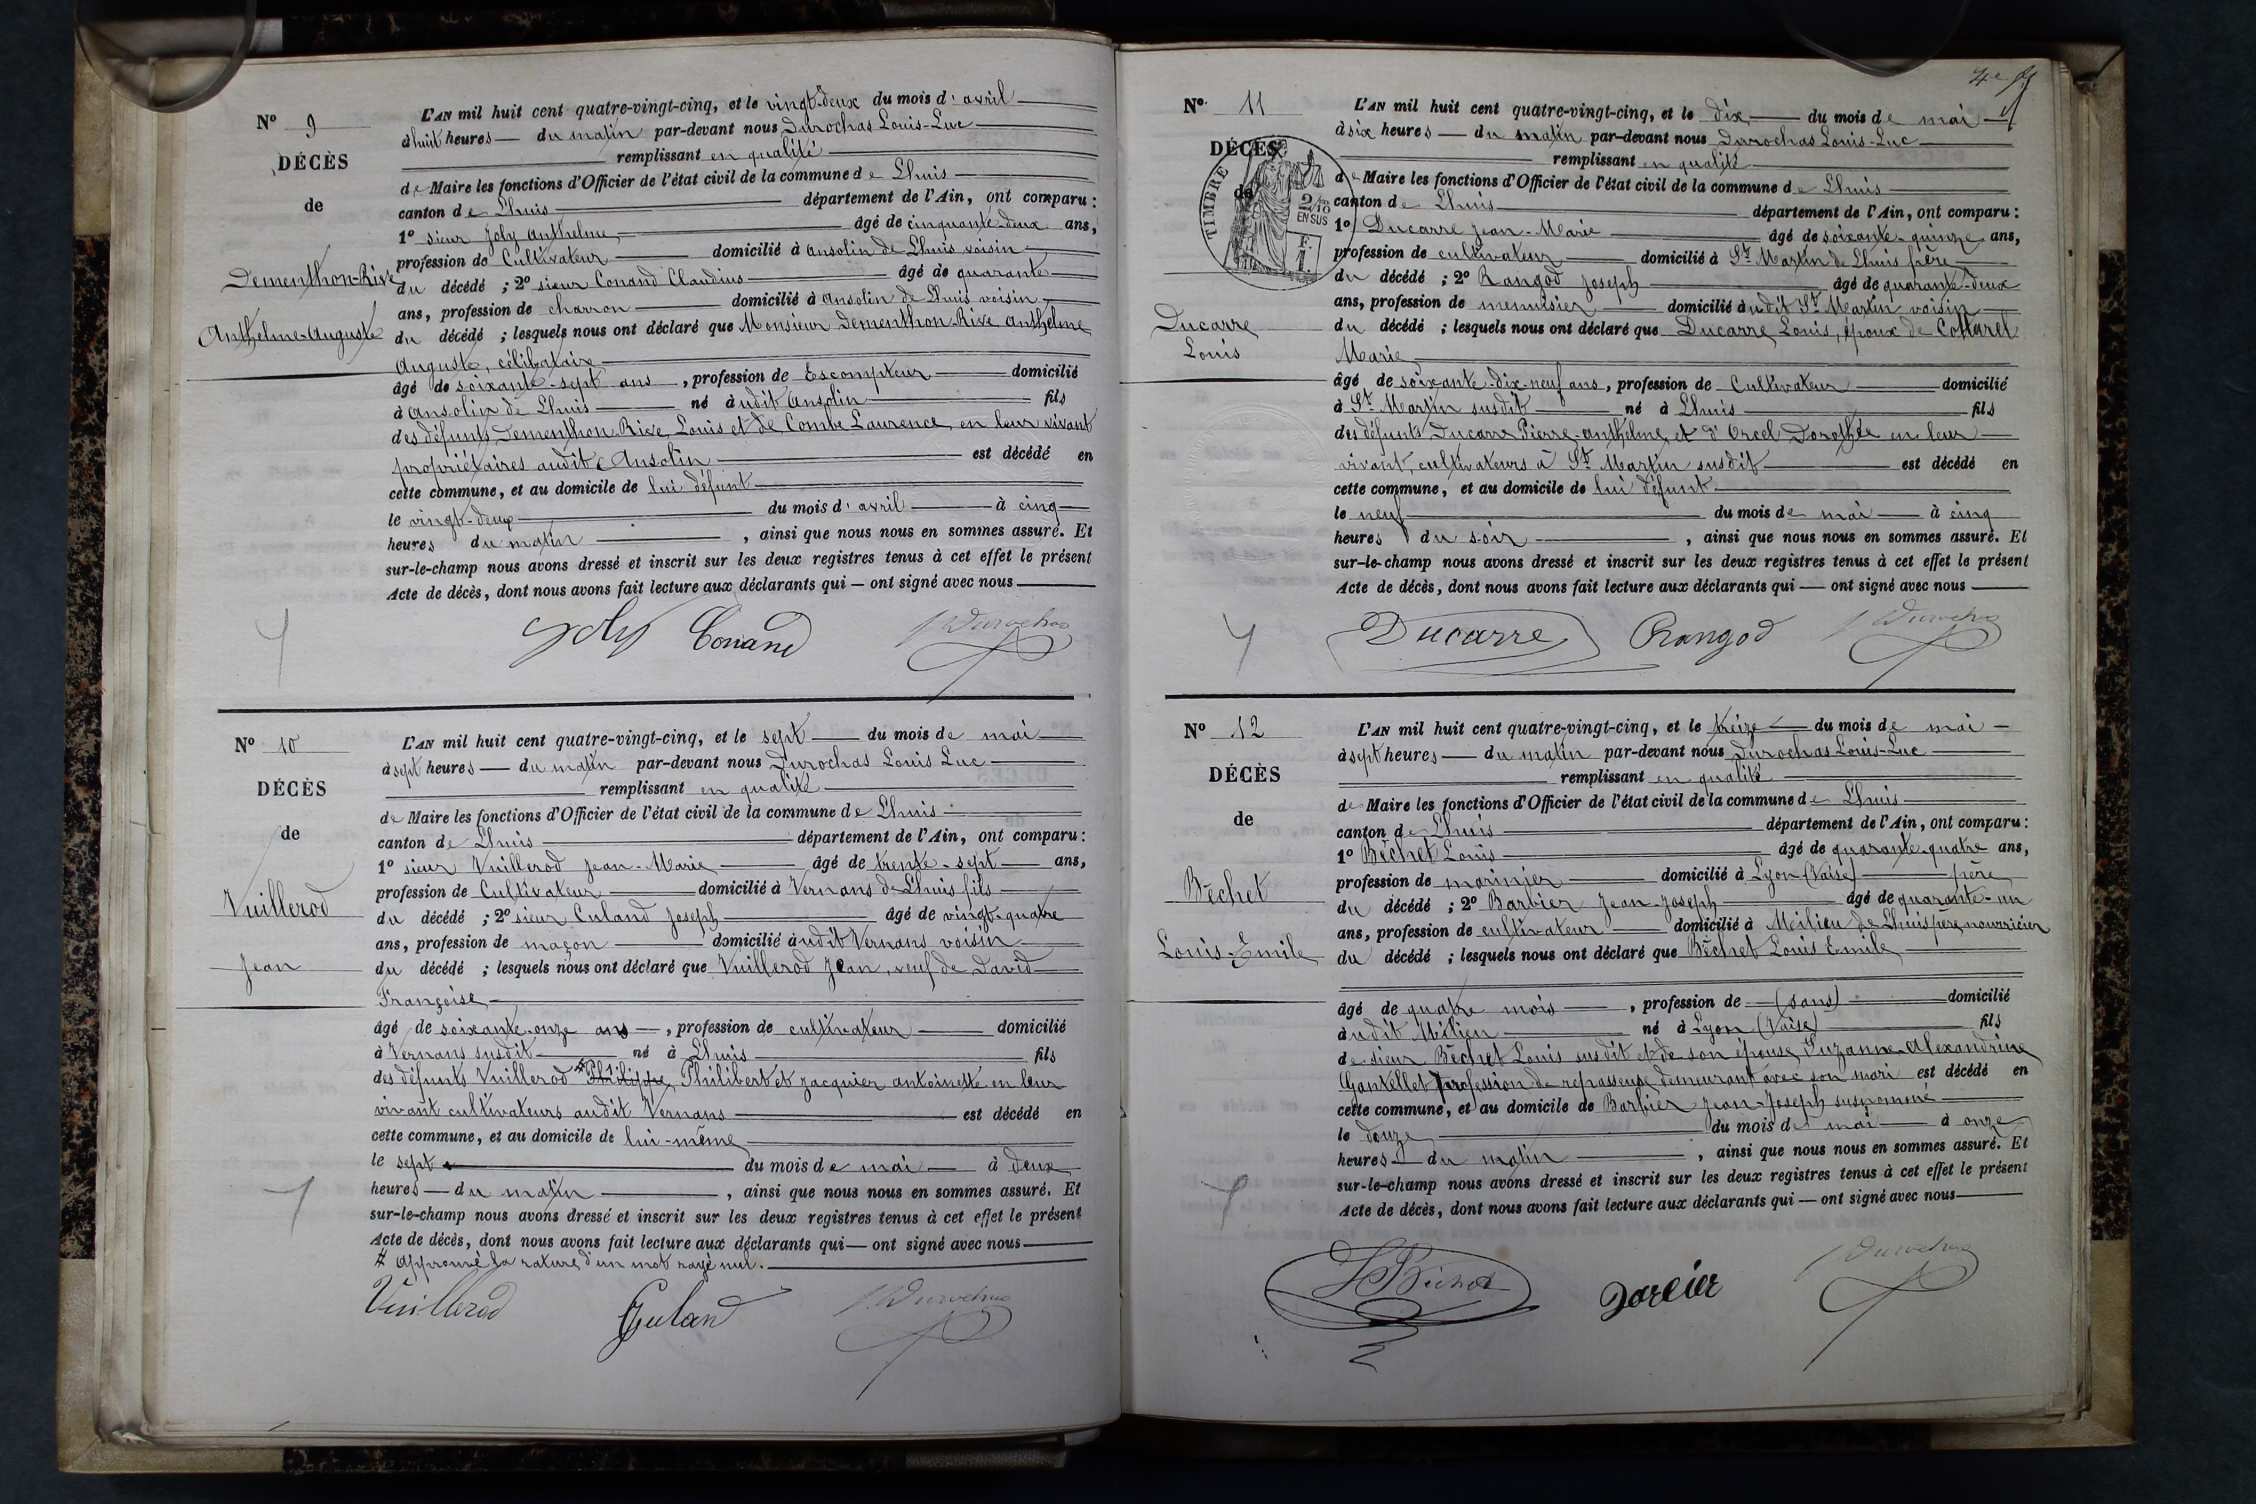 N° 9
DÉCÈS
de
Dementhon-Rive
Anthelme-Auguste
L'AN mil huit cent quatre-vingt-cinq, et le vingt-deux du mois d'avril
à huit heures du matin par-devant nous Durochas Louis-Luc
remplissant en qualité
de Maire les fonctions d'Officier de l'état civil de la commune de Lhuis
canton de Lhuis département de l'Ain, ont comparu :
1° sieur Joly Anthelme âgé de cinquante-deux ans,
profession de Cultivateur domicilié à Ansolin de Lhuis voisin
du décédé ; 2° sieur Conand Claudius âgé de quarante
ans, profession de charron domicilié à Ansolin de Lhuis voisin
du décédé ; lesquels nous ont déclaré que Monsieur Dementhon-Rive Anthelme
Auguste, célibataire
âgé de soixante-sept ans, profession de Escompteur domicilié
à Ansolin de Lhuis né à udit Ansolin fils
des défunts Dementhon-Rive Louis et de Combe Laurence, en leur vivant
propriétaires audit Ansolin est décédé en
cette commune, et au domicile de lui défunt
le vingt-deux du mois d'avril à cinq
heures du matin, ainsi que nous nous en sommes assuré. Et
sur-le-champ nous avons dressé et inscrit sur les deux registres tenus à cet effet le présent
Acte de décès, dont nous avons fait lecture aux déclarants qui — ont signé avec nous
Joly Conand Durochas
N° 10
DÉCÈS
de
Vuillerod
Jean
L'AN mil huit cent quatre-vingt-cinq, et le sept du mois de mai
à sept heures du matin par-devant nous Durochas Louis Luc
remplissant en qualité
de Maire les fonctions d'Officier de l'état civil de la commune de Lhuis
canton de Lhuis département de l'Ain, ont comparu :
1° sieur Vuillerod Jean-Marie âgé de trente-sept ans,
profession de Cultivateur domicilié à Vernans de Lhuis fils
du décédé ; 2° sieur Culand Joseph âgé de vingt-quatre
ans, profession de maçon domicilié à udit Vernans voisin
du décédé ; lesquels nous ont déclaré que Vuillerod Jean, veuf de David
Françoise
âgé de soixante-onze ans, profession de cultivateur domicilié
à Vernans susdit né à Lhuis fils
des défunts Vuillerod # Philippe Philibert et Jacquier Antoinette en leur
vivant cultivateurs audit Vernans est décédé en
cette commune, et au domicile de lui-même
le sept du mois de mai à deux
heures du matin, ainsi que nous nous en sommes assuré. Et
sur-le-champ nous avons dressé et inscrit sur les deux registres tenus à cet effet le présent
Acte de décès, dont nous avons fait lecture aux déclarants qui — ont signé avec nous
# Approuvé la rature d'un mot rayé nul.
Vuillerod Culand Durochas
4e
N° 11
DÉCÈS
de
TIMBRE
2/10
EN SUS
F.
1.
Ducarre
Louis
L'AN mil huit cent quatre-vingt-cinq, et le dix du mois de mai
à six heures du matin par-devant nous Durochas Louis-Luc
remplissant en qualité
de Maire les fonctions d'Officier de l'état civil de la commune de Lhuis
canton de Lhuis département de l'Ain, ont comparu :
1° Ducarre Jean-Marie âgé de soixante-quinze ans,
profession de cultivateur domicilié à St Martin de Lhuis frère
du décédé ; 2° Rangod Joseph âgé de quarante-deux
ans, profession de menuisier domicilié à udit St Martin voisin
du décédé ; lesquels nous ont déclaré que Ducarre Louis, époux de Cottarel
Marie
âgé de soixante-dix-neuf ans, profession de Cultivateur domicilié
à St Martin susdit né à Lhuis fils
des défunts Ducarre Pierre-Anthelme et d'Orcel Dorothée en leur
vivant, cultivateurs à St Martin susdit est décédé en
cette commune, et au domicile de lui défunt
le neuf du mois de mai à cinq
heures du soir, ainsi que nous nous en sommes assuré. Et
sur-le-champ nous avons dressé et inscrit sur les deux registres tenus à cet effet le présent
Acte de décès, dont nous avons fait lecture aux déclarants qui — ont signé avec nous
Ducarre Rangod Durochas
N° 12
DÉCÈS
de
Béchet
Louis-Emile
L'AN mil huit cent quatre-vingt-cinq, et le treize du mois de mai
à sept heures du matin par-devant nous Durochas Louis-Luc
remplissant en qualité
de Maire les fonctions d'Officier de l'état civil de la commune de Lhuis
canton de Lhuis département de l'Ain, ont comparu :
1° Béchet Louis âgé de quarante-quatre ans,
profession de marinier domicilié à Lyon (Vaise) père
du décédé ; 2° Barbier Jean-Joseph âgé de quarante-un
ans, profession de cultivateur domicilié à Milieu de Lhuis père nourricier
du décédé ; lesquels nous ont déclaré que Béchet Louis Emile
âgé de quatre mois, profession de (sans) domicilié
à udit Milieu né à Lyon (Vaise) fils
de sieur Béchet Louis susdit et de son épouse Suzanne-Alexandrine
Gantellet profession de repasseuse demeurant avec son mari est décédé en
cette commune, et au domicile de Barbier Jean-Joseph susnommé
le douze du mois de mai à onze
heures du matin, ainsi que nous nous en sommes assuré. Et
sur-le-champ nous avons dressé et inscrit sur les deux registres tenus à cet effet le présent
Acte de décès, dont nous avons fait lecture aux déclarants qui — ont signé avec nous
Durochas